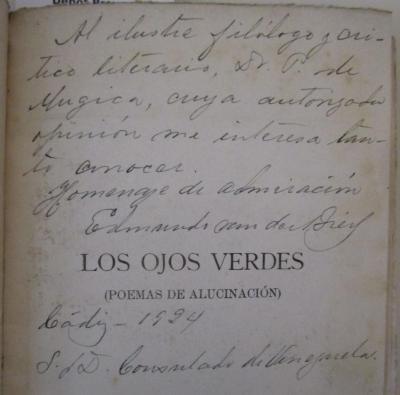 Al ilustre filólogo y crí-
tico literario, Dr. P. de
Mugica, cuya autorizada
opinión me interesa tan-
to conocer.
Homenaje de admiración
Edmundo van der Biest
LOS OJOS VERDES
(POEMAS DE ALUCINACIÓN)
Cádiz - 1924
S/D. Consulado de Venezuela.